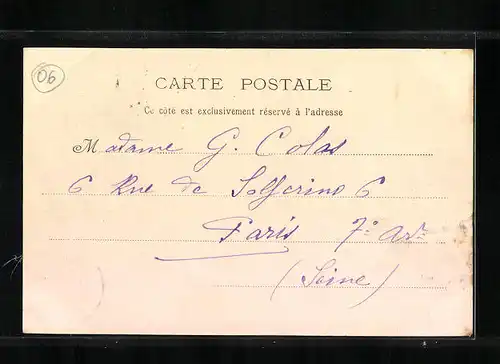 06
CARTE POSTALE
Ce côté est exclusivement réservé à l'adresse
Madame G. Colas
6 Rue de Solferino 6
Paris 7e Arr.
(Seine)